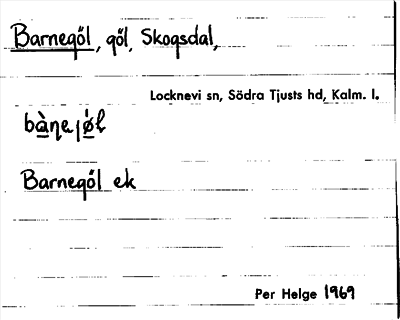 Barnegöl, göl, Skogsdal,
Locknevi sn, Södra Tjusts hd, Kalm. l.
bàɳejø̀l
Barnegöl ek
Per Helge 1969